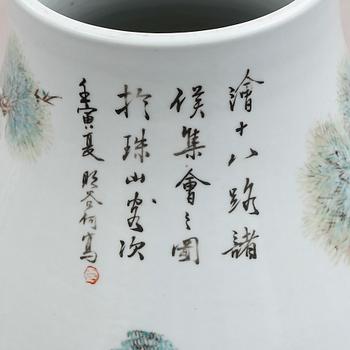 繪十八路諸
侯集會之圖
於珠山客次
壬寅夏明谷何寫